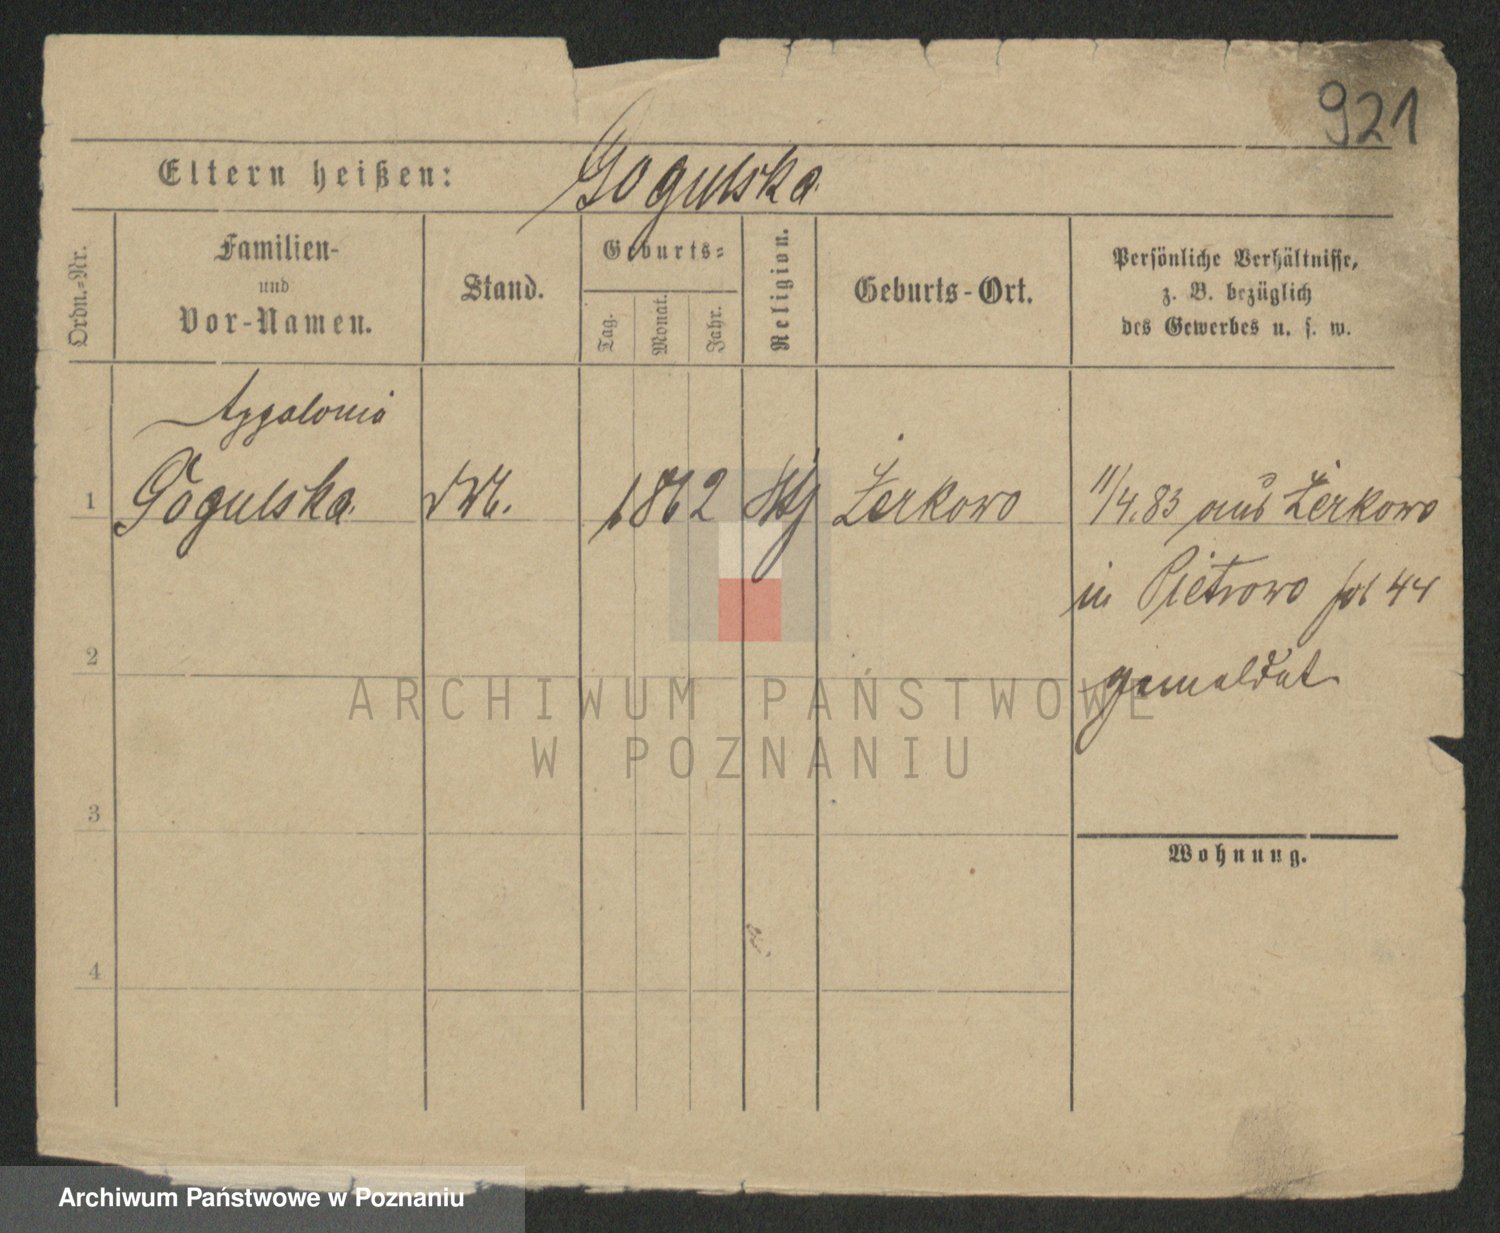 921
Eltern heißen: Gogulska
Ordn.-Nr.
Familien-
und
Vor-Namen.
Stand.
Geburts-
Tag.
Monat.
Jahr.
Religion.
Geburts-Ort.
Persönliche Verhältnisse,
z. B. bezüglich
des Gewerbes u. s. w.
Appalonia
1 Gogulska 1862 Żerkowo 11/4.83 aus Żerkowo
in Pietrowo fol 44
gemeldet
2
3
Wohnung.
4
ARCHIWUM PAŃSTWOWE
W POZNANIU
Archiwum Państwowe w Poznaniu